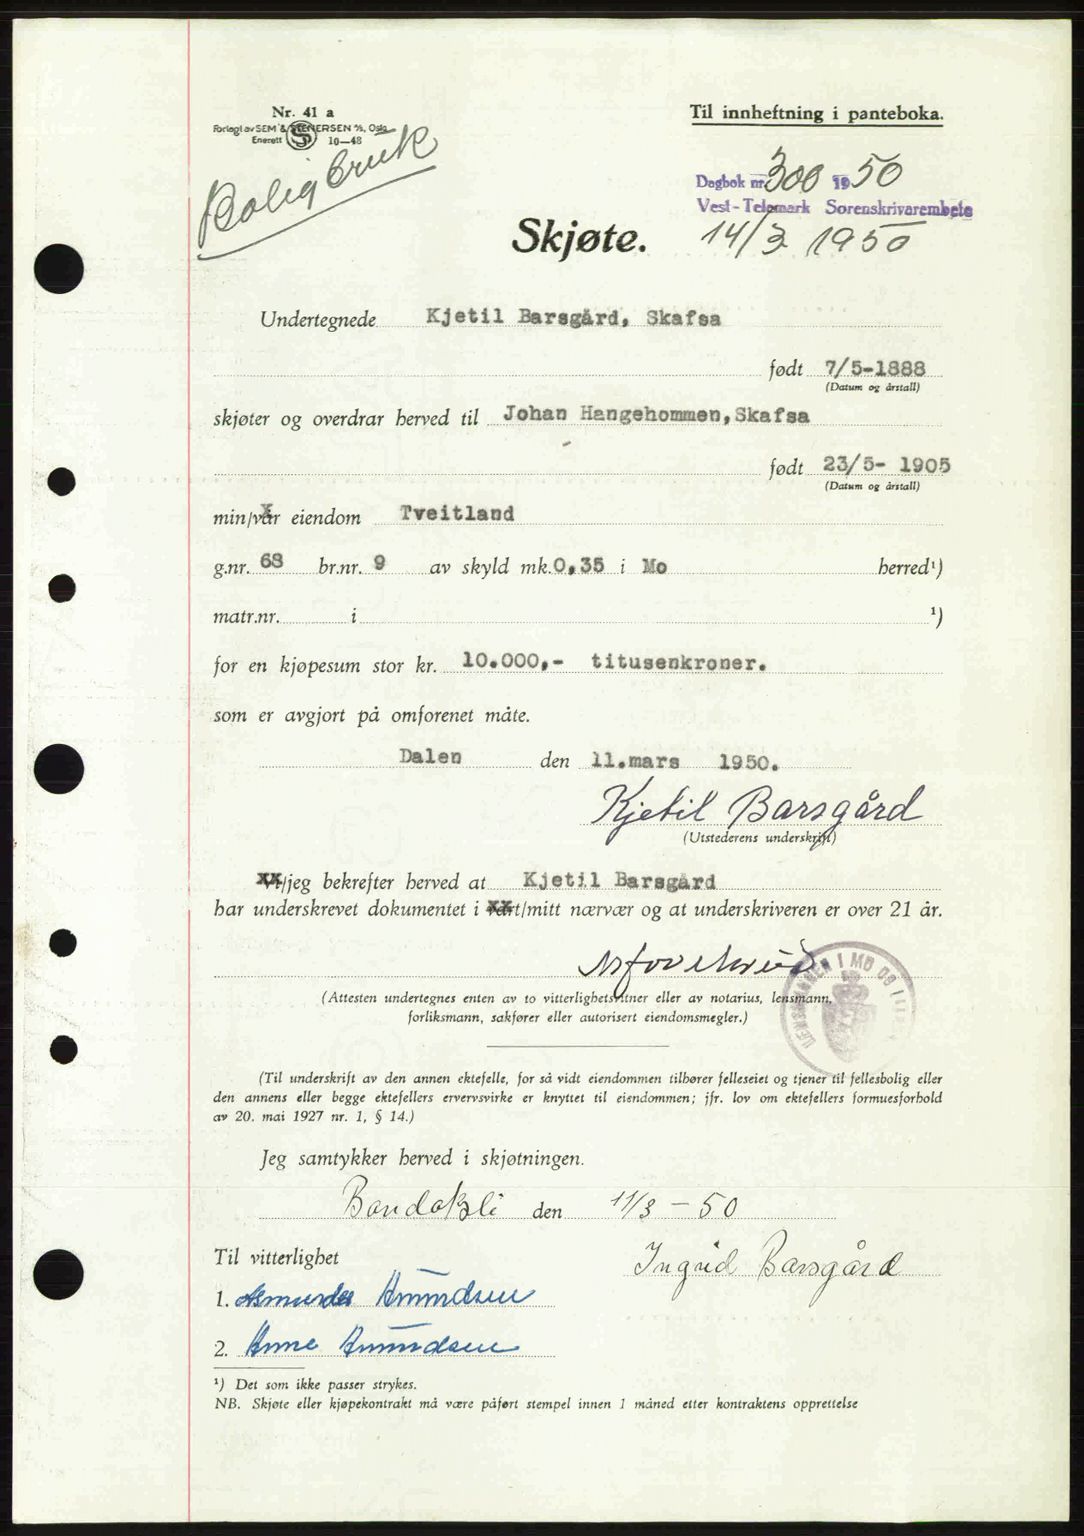 Nr. 41 a
Forlagt av SEM & STENERSEN A/S, Oslo
Enerett 10—48
Boligbruk
Til innheftning i panteboka.
Dagbok nr. 300 1950
Vest-Telemark Sorenskrivarembete
14/3 1950
Skjøte.
Undertegnede Kjetil Barsgård, Skafsa
født 7/5-1888
(Datum og årstall)
skjøter og overdrar herved til Johan Hangehommen, Skafsa
født 23/5- 1905
(Datum og årstall)
min/vår eiendom Tveitland
g.nr. 68 br.nr. 9 av skyld mk. 0,35 i Mo herred¹)
matr.nr. i ¹)
for en kjøpesum stor kr. 10.000,- titusenkroner.
som er avgjort på omforenet måte.
Dalen den 11.mars 1950.
Kjetil Barsgård
(Utstederens underskrift)
Vi/jeg bekrefter herved at Kjetil Barsgård
har underskrevet dokumentet i vårt/mitt nærvær og at underskriveren er over 21 år.
LENSMANNEN I MO OG
(Attesten undertegnes enten av to vitterlighetsvitner eller av notarius, lensmann,
forliksmann, sakfører eller autorisert eiendomsmegler.)
(Til underskrift av den annen ektefelle, for så vidt eiendommen tilhører felleseiet og tjener til fellesbolig eller
den annens eller begge ektefellers ervervsvirke er knyttet til eiendommen; jfr. lov om ektefellers formuesforhold
av 20. mai 1927 nr. 1, § 14.)
Jeg samtykker herved i skjøtningen.
den 11/3 - 50
Til vitterlighet
Ingrid Barsgård
1. Amundsen
2. Anne Amundsen
¹) Det som ikke passer strykes.
NB. Skjøte eller kjøpekontrakt må være påført stempel innen 1 måned etter kontraktens opprettelse